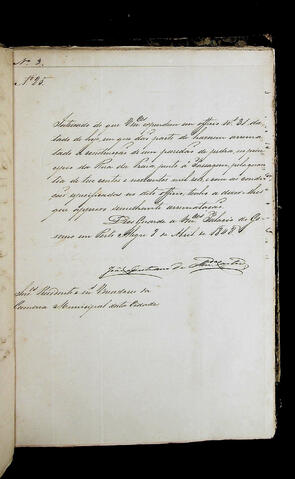 Nº 3.
Nº 25.
Inteirado do que Vmcês expendem em officio nº 31 da-
tado de hoje, em que dão parte de haverem arrema-
tado a construcção de um paredão de pedra, no prin-
cipio da Rua da Praia, junto a
tia de tres contos e novecentos mil reis, e com as condi-
ções especificadas no dito officio, tenho a dizer-lhes
que approvo semelhante arrematação.
Deos Guarde a Vmcês Palacio do Go-
verno em Porto Alegre 3 de Abril de 1848
Snrs. Presidente e Vereadores da
Camara Municipal desta Cidade